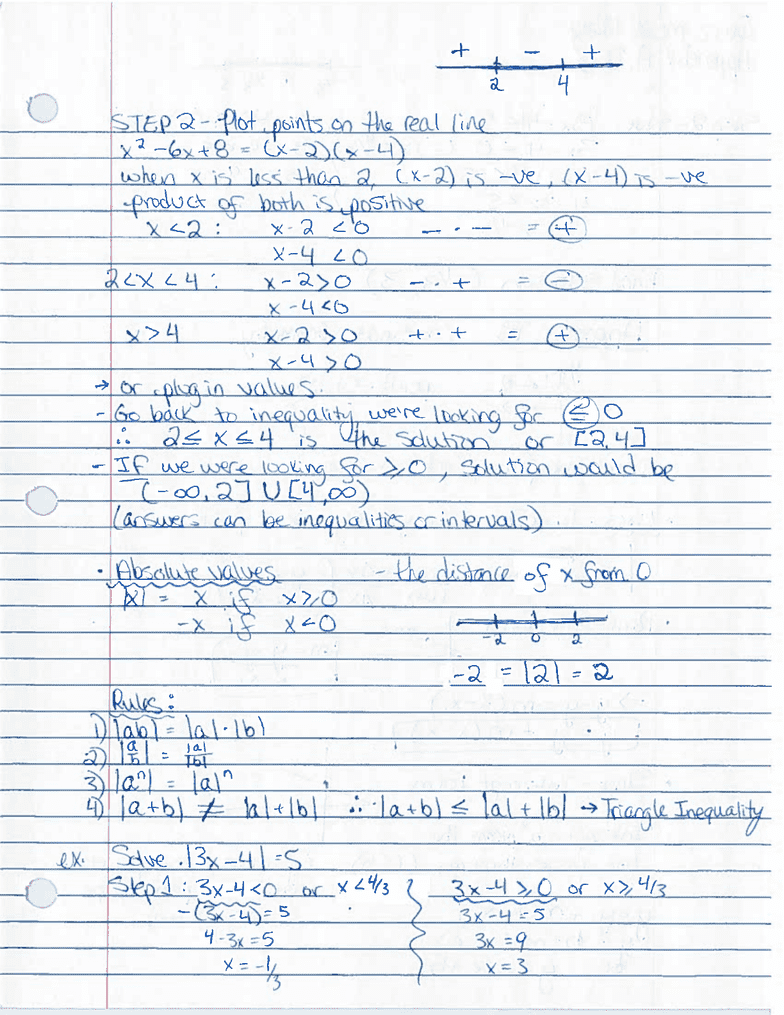 + - +
2 4
STEP 2 - Plot points on the real line
x² - 6x + 8 = (x-2)(x-4)
when x is less than 2, (x-2) is -ve, (x-4) is -ve
product of both is positive
x < 2 : x - 2 < 0 - · - = +
x - 4 < 0
2 < x < 4 : x - 2 > 0 - · + = -
x - 4 < 0
x > 4 x - 2 > 0 + · + = +
x - 4 > 0
→ or plug in values.
- Go back to inequality, we're looking for ≤ 0
∴ 2 ≤ x ≤ 4 is the solution or [2,4]
- If we were looking for ≥ 0, solution would be
(-∞, 2] U [4, ∞)
(answers can be inequalities or intervals)
• Absolute values - the distance of x from 0
|x| = x if x ≥ 0
-x if x < 0
-2 0 2
-2 = |2| = 2
Rules:
1) |ab| = |a| · |b|
2) |a/b| = |a|/|b|
3) |aⁿ| = |a|ⁿ
4) |a+b| ≠ |a| + |b| ∴ |a+b| ≤ |a| + |b| → Triangle Inequality
ex. Solve |3x-4| = 5
Step 1 : 3x-4 < 0 or x < 4/3 3x-4 ≥ 0 or x ≥ 4/3
-(3x-4) = 5 3x-4 = 5
4-3x = 5 3x = 9
x = -1/3 x = 3